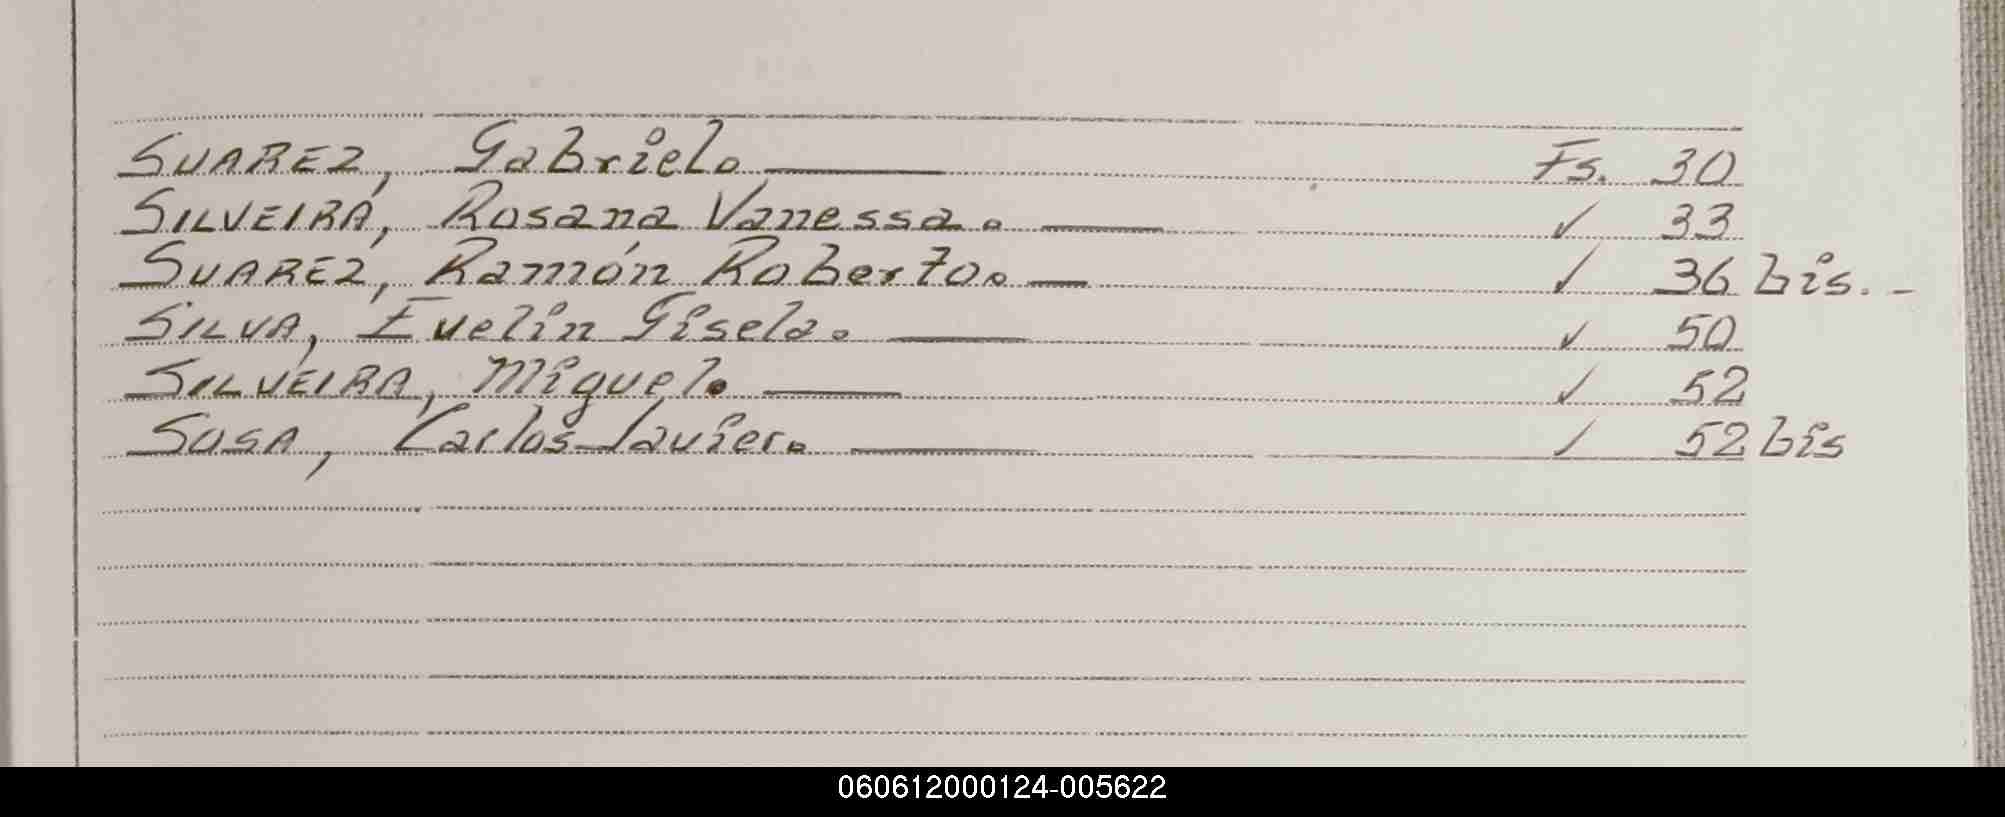 SUAREZ, Gabriel. — Fs. 30
SILVEIRA, Rosana Vanessa. — ✓ 33
SUAREZ, Ramón Roberto. — ✓ 36 bis. -
SILVA, Evelin Gisela. — ✓ 50
SILVEIRA, Miguel. — ✓ 52
SOSA, Carlos Javier. — ✓ 52 bis
060612000124-005622